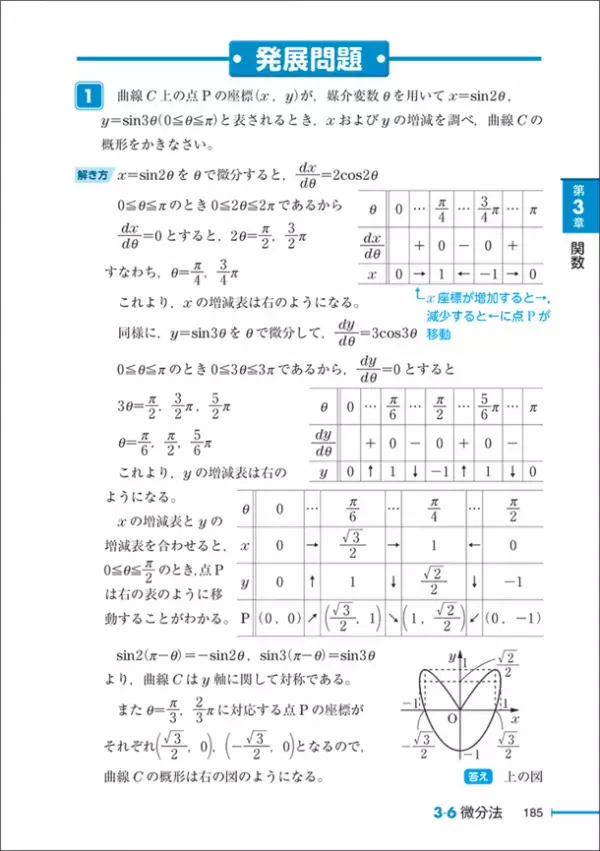 発展問題
1 曲線C上の点Pの座標(x, y)が, 媒介変数θを用いてx=sin2θ,
y=sin3θ(0≦θ≦π)と表されるとき, xおよびyの増減を調べ, 曲線Cの
概形をかきなさい。
解き方 x=sin2θをθで微分すると, dx/dθ=2cos2θ
0≦θ≦πのとき0≦2θ≦2πであるから
dx/dθ=0とすると, 2θ=π/2, 3/2π
すなわち, θ=π/4, 3/4π
これより, xの増減表は右のようになる。
θ 0 … π/4 … 3/4π … π
dx/dθ + 0 − 0 +
x 0 → 1 ← −1 → 0
x座標が増加すると→,
減少すると←に点Pが
移動
第3章 関数
同様に, y=sin3θをθで微分して, dy/dθ=3cos3θ
0≦θ≦πのとき0≦3θ≦3πであるから, dy/dθ=0とすると
3θ=π/2, 3/2π, 5/2π
θ=π/6, π/2, 5/6π
これより, yの増減表は右の
ようになる。
θ 0 … π/6 … π/2 … 5/6π … π
dy/dθ + 0 − 0 + 0 −
y 0 ↑ 1 ↓ −1 ↑ 1 ↓ 0
xの増減表とyの
増減表を合わせると,
0≦θ≦π/2のとき, 点P
は右の表のように移
動することがわかる。
θ 0 … π/6 … π/4 … π/2
x 0 → √3/2 → 1 ← 0
y 0 ↑ 1 ↓ √2/2 ↓ −1
P (0, 0) ↗ (√3/2, 1) ↘ (1, √2/2) ↙ (0, −1)
sin2(π−θ)=−sin2θ, sin3(π−θ)=sin3θ
より, 曲線Cはy軸に関して対称である。
またθ=π/3, 2/3πに対応する点Pの座標が
それぞれ(√3/2, 0), (−√3/2, 0)となるので,
曲線Cの概形は右の図のようになる。
y 1 √2/2
−1 O 1 x
−√3/2 −1 √3/2
答え 上の図
3-6 微分法 185